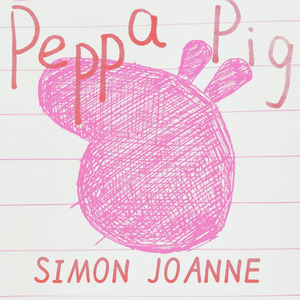 Peppa Pig
SIMON JOANNE